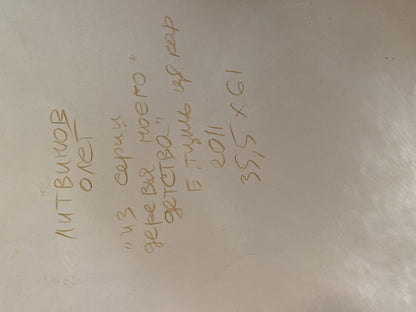 ЛИТВИНОВ
ОЛЕГ
"ИЗ серии
деревья моего"
детства"
Б. тушь цв кар
2011
35,5 x 61